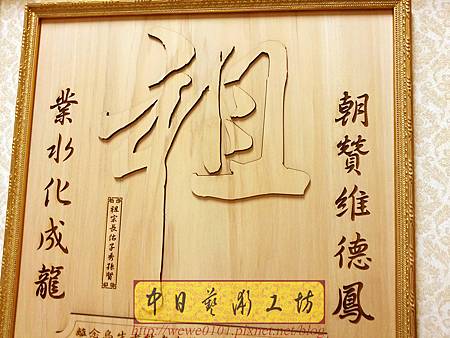 朝贊維德鳳
祖
祖宗長佑子秀孫賢
業水化成龍
中日藝術工坊
http://wewe0101.pixnet.net/blog